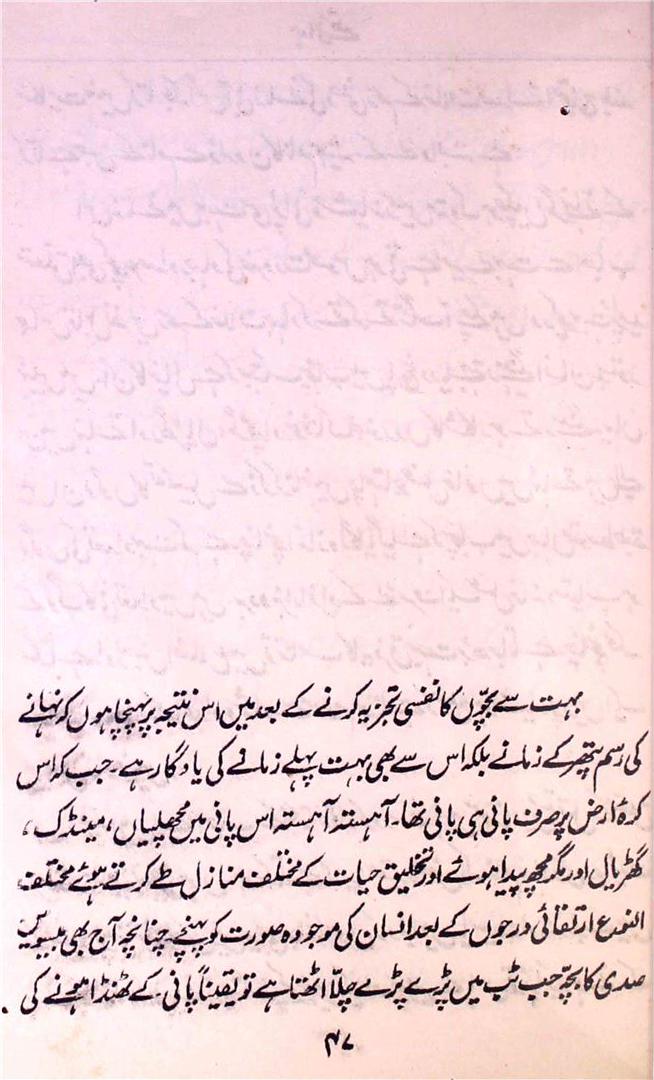 بہت سے بچّوں کا نفسی تجزیہ کرنے کے بعد میں اس نتیجہ پر پہنچا ہوں کہ نہانے
کی رسم پتھر کے زمانے بلکہ اس سے بھی بہت پہلے زمانے کی یادگار ہے۔ جب کہ اس
کرۂ ارض پر صرف پانی ہی پانی تھا۔ آہستہ آہستہ اس پانی میں مچھلیاں، مینڈک،
گھڑیال اور مگرمچھ پیدا ہوئے اور تخلیق حیات کے مختلف منازل طے کرتے ہوئے مختلف
النوع ارتقائی درجوں کے بعد انسان کی موجودہ صورت کو پہنچے چنانچہ آج بھی بیسویں
صدی کا بچّہ جب ٹب میں پڑے پڑے چلّا اٹھتا ہے تو یقیناً پانی کے ٹھنڈا ہونے کی
۴۷